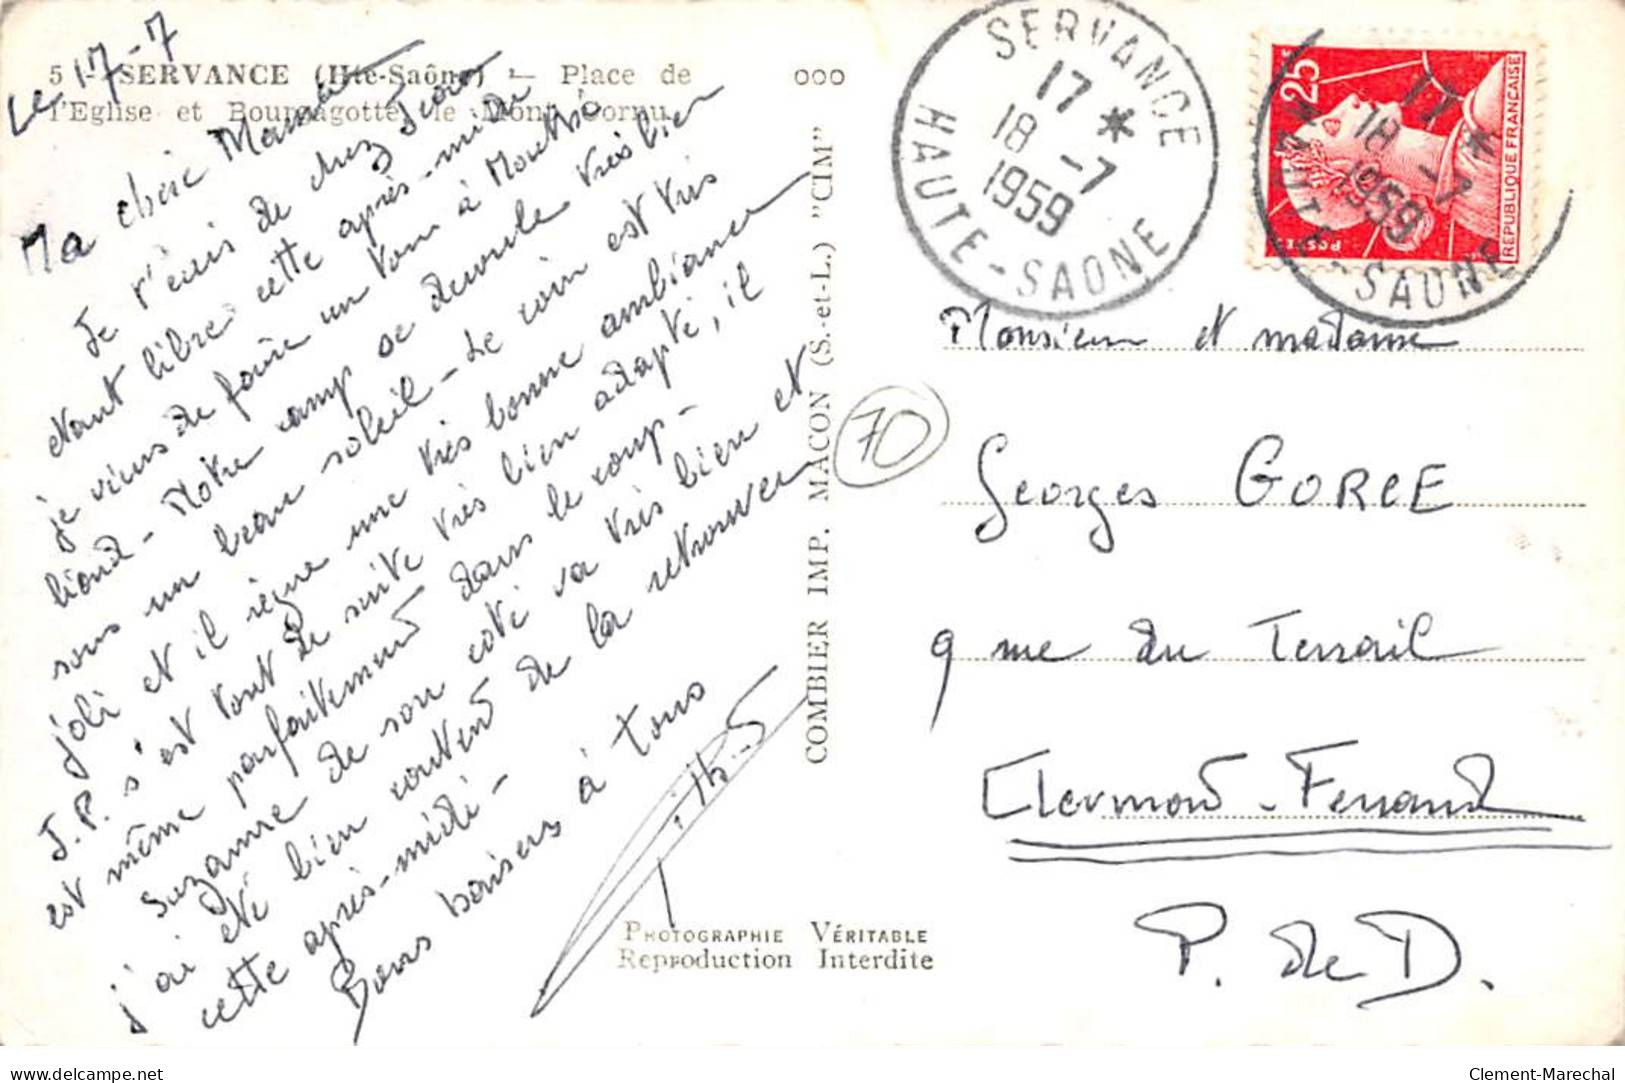 Le 17-7
5 - SERVANCE (Hte-Saône) - Place de
l'Eglise et Bourbagotte, le Mont Cornu
Ma chère Mamé
Je t'écris de chez Jean
étant libre cette après-midi
je viens de faire un tour à
Notre camp se déroule très bien
sous un beau soleil - Le coin est très
joli et il règne une très bonne ambiance
J.P. s'est tout de suite très bien adapté, il
est même parfaitement dans le coup -
Suzanne de son côté va très bien et
j'ai été bien content de la retrouver
cette après-midi -
Bons baisers à tous
COMBIER IMP. MACON (S.-et-L.) "CIM"
PHOTOGRAPHIE VÉRITABLE
Reproduction Interdite
ooo
SERVANCE
17 *
18 -7
1959
HAUTE-SAONE
25
POSTES
REPUBLIQUE FRANÇAISE
17 *
18 -7
1959
HAUTE-SAONE
70
Monsieur et madame
Georges GORCE
9 rue du Terrail
Clermont-Ferrand
P. de D.
Clement-Marechal